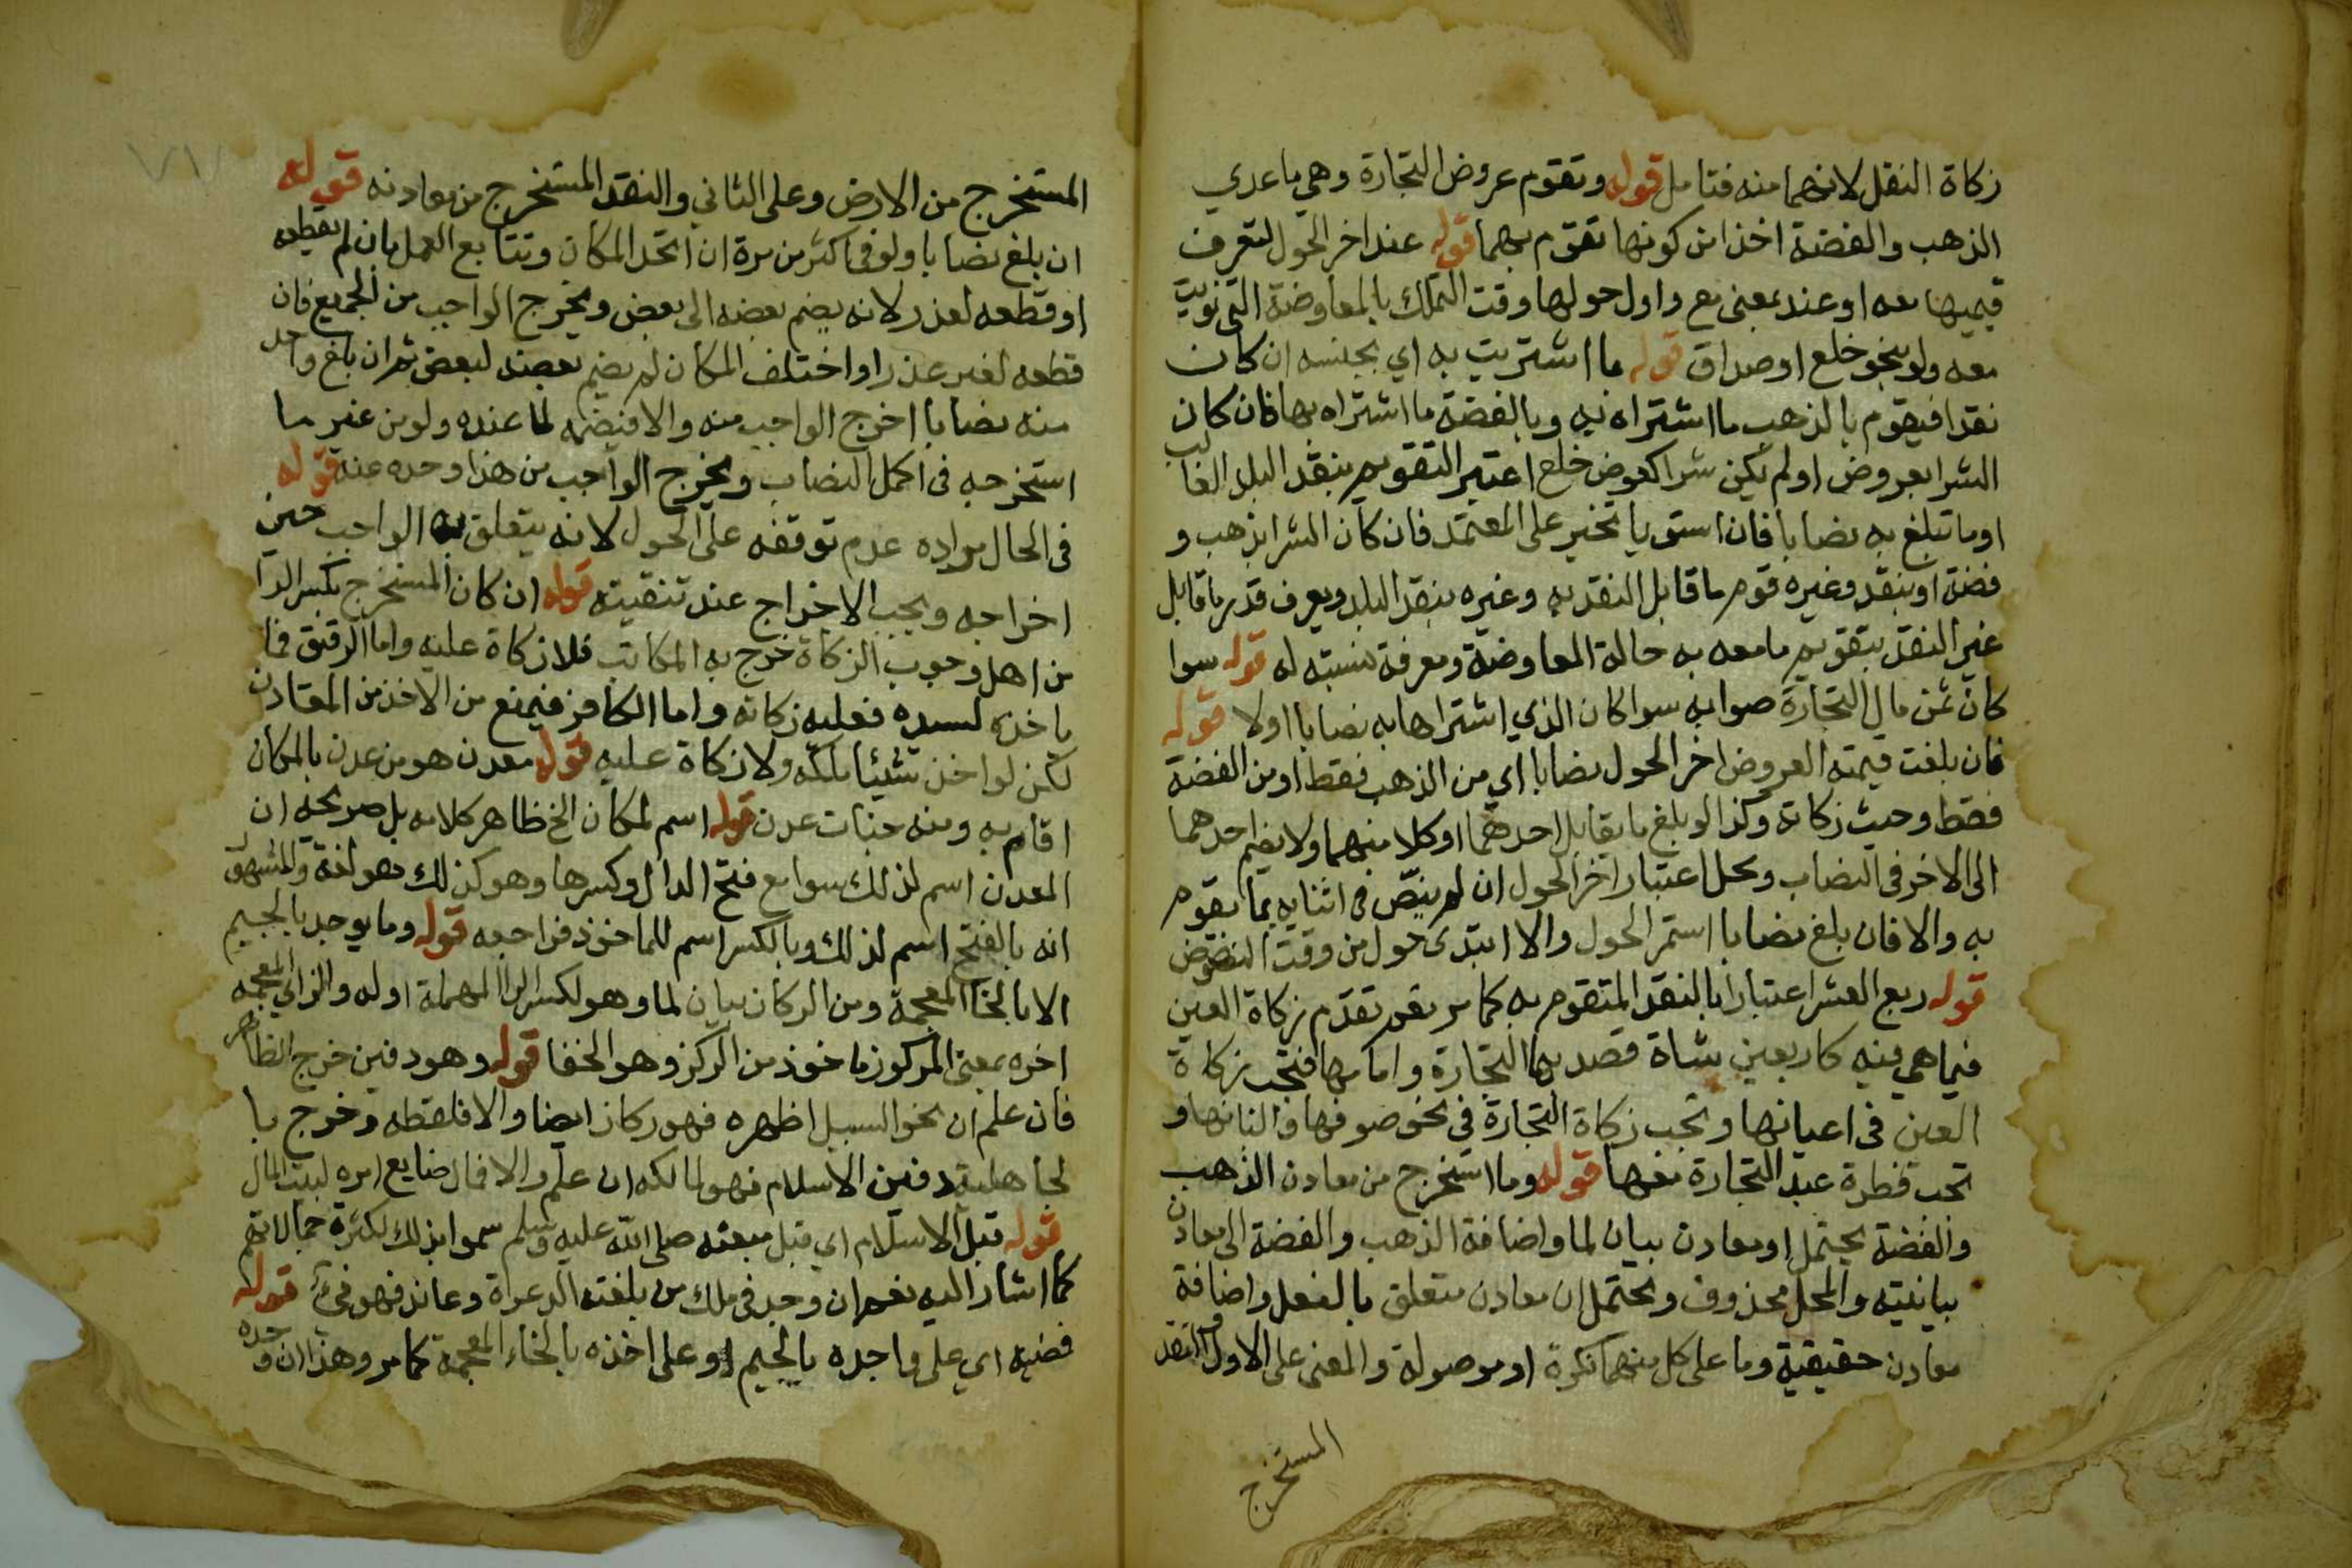 زكاة النقل لانهما منه فتامل قوله وتقوم عروض التجارة وهي ما عدي
الذهب والفضة اخذا من كونها تقوم بهما قوله عند اخر الحول لتعرف
قيمتها معه او عند بمعنى مع واول حولها وقت التملك بالمعاوضة التي نويت
معه ولو بنحو خلع او صداق قوله ما اشتريت به اي بجنسه ان كان
نقدا فيقوم بالذهب ما اشتراه به وبالفضة ما اشتراه بها فان كان
الشرا بعروض او لم يكن شرا كعوض خلع اعتبر التقويم بنقد البلد الغالب
او ما تبلغ به نصابا فان استويا تخير على المعتمد فان كان الشرا بذهب و
فضة او بنقد وغيره قوم ما قابل النقد به وغيره بنقد البلد ويعرف قدر ما قابل
غير النقد بتقويم ما معه به حالة المعاوضة ومعرفة نسبته له قوله سوا
كان ثمن مال التجارة صوابه سوا كان الذي اشتراها به نصابا اولا قوله
فان بلغت قيمته العروض اخر الحول نصابا اي من الذهب فقط او من الفضة
فقط وحيث زكاته وكذا لو بلغ ما يقابل احدهما او كلا منهما ولا يضم احدهما
الى الاخر في النصاب ومحل اعتبار اخر الحول ان لم ينض في اثنايه بما يقوم
به والا فان بلغ نصابا استمر الحول والا ابتدى حول من وقت النضوض
قوله ربع العشر اعتبارا بالنقد المتقوم به كما مر نعم تقدم زكاة العين
فيما هي فيه كاربعين شاة قصد بها التجارة واما بها فتجب زكاة
العين في اعيانها وتجب زكاة التجارة في نحو صوفها والبانها و
تجب فطرة عبد التجارة معها قوله وما استخرج من معادن الذهب
والفضة يحتمل ومعادن بيان لما واضافة الذهب والفضة الى معادن
بيانيته والمحل محذوف ويحتمل ان معادن متعلق بالفعل واضافة
معادن حقيقية وما على كل منهما نكرة او موصولة والمعنى على الاول والنقد
المستخرج
المستخرج من الارض وعلى الثاني والنقد المستخرج من معادنه قوله
ان بلغ نصابا ولو في اكثر من مرة ان اتحد المكان وتتابع العمل بان لم يقطعه
او قطعه لعذر لانه يضم بعضه الى بعض ويخرج الواجب من الجميع فان
قطعه لغير عذر او اختلف المكان لم يضم بعضه لبعض ثم ان بلغ واحد
منه نصابا اخرج الواجب منه والا فيضمه لما عنده ولو من غير ما
استخرجه في اكمل النصاب ويخرج الواجب من هذا وحده عنه قوله
في الحال مراده عدم توقفه على الحول لانه يتعلق به الواجب حين
اخراجه ويجب الاخراج عند تنقيته قوله ان كان المستخرج بكسر الرا
من اهل وجوب الزكاة خرج به المكاتب فلا زكاة عليه واما الرقيق فما
ياخذه لسيده فعليه زكاته واما الكافر فيمنع من الاخذ من المعادن
لكن لو اخذ شيئا ملكه ولا زكاة عليه قوله معدن هو من عدن بالمكان
اقام به ومنه جنات عدن قوله اسم لمكان الخ ظاهر كلامه بل صريحه ان
المعدن اسم لذلك سوا مع فتح الدال وكسرها وهو كذلك وهو لغة والمشهور
انه بالفتح اسم لذلك وبالكسر اسم للماخوذ فراجعه قوله وما يوجد بالجيم
الا بالخا المعجمة ومن الركاز بيان لما وهو لكسر الرا المهملة اوله والزاي المعجمة
اخره بمعنى المركوز ماخوذ من الركز وهو الخفا قوله وهو دفين خرج الظاهر
فان علم ان نحو السيل اظهره فهو ركاز ايضا والا فلقطه وخرج با
لجاهلية دفين الاسلام فهو لمالكه ان علم والا فمال ضايع امره لبيت المال
قوله قبل الاسلام اي قبل مبعثه صلى الله عليه وسلم سموا بذلك لكثرة جهالاتهم
كما اشار اليه نعم ان وجد في ملك من بلغته الدعوة وعاند فهو فيء قوله
ففيه اي على واجده بالجيم او على اخذه بالخاء المعجمة كما مر وهذا ان وجده